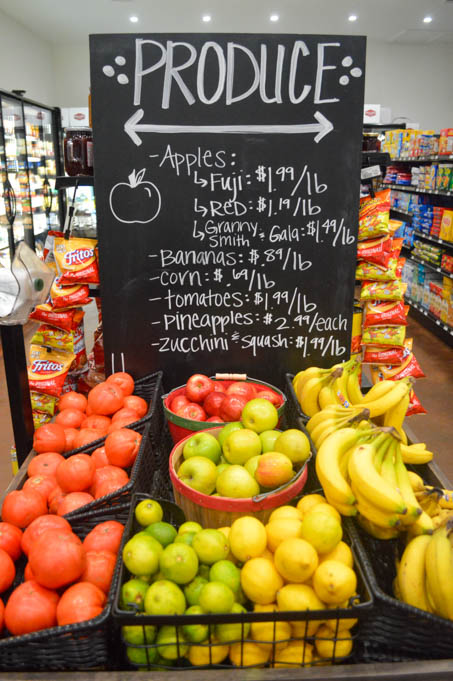 PRODUCE
-Apples:
↳Fuji: $1.99/lb
↳Red: $1.19/lb
↳Granny Smith & Gala: $1.49/lb
-Bananas: $.89/lb
-corn: $.69/lb
-tomatoes: $1.99/lb
-pineapples: $2.99/each
-zucchini & squash: $1.99/lb
Fritos
Fritos